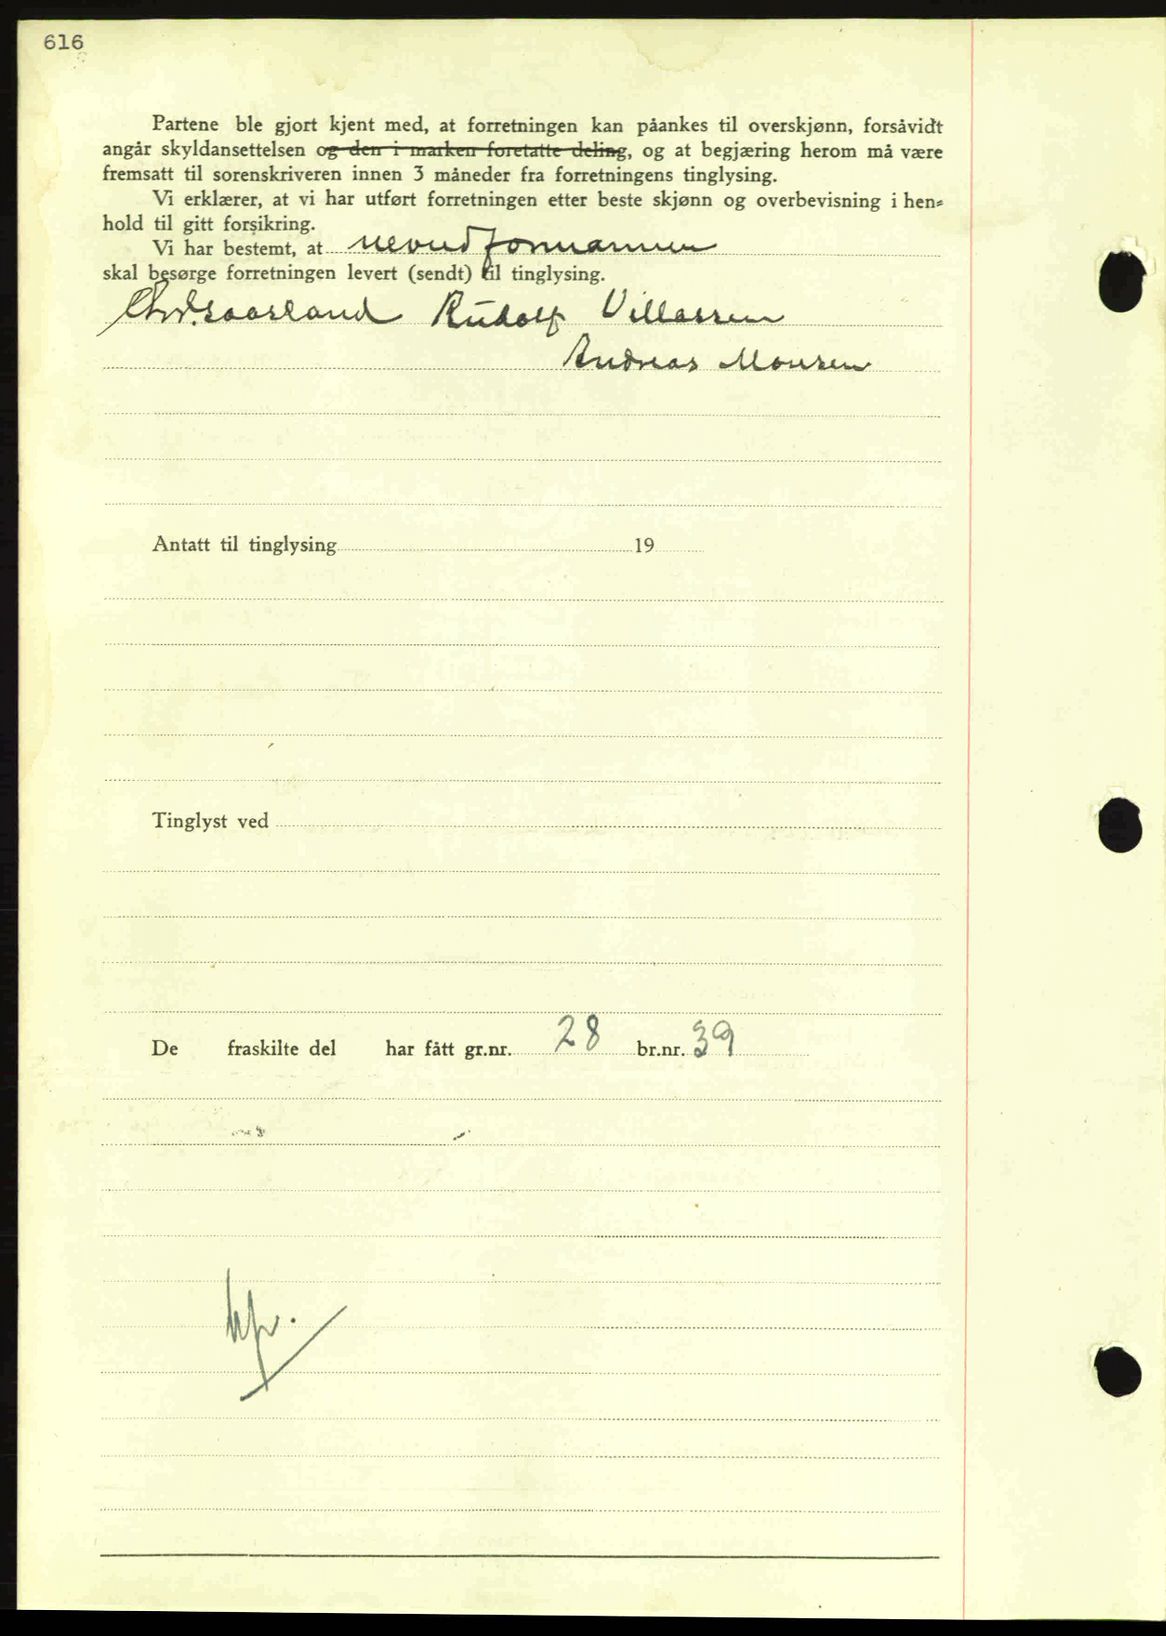 616
Partene ble gjort kjent med, at forretningen kan påankes til overskjønn, forsåvidt
angår skyldansettelsen og den i marken foretatte deling, og at begjæring herom må være
fremsatt til sorenskriveren innen 3 måneder fra forretningens tinglysing.
Vi erklærer, at vi har utført forretningen etter beste skjønn og overbevisning i hen=
hold til gitt forsikring.
Vi har bestemt, at nevndformannen
skal besørge forretningen levert (sendt) til tinglysing.
Rudolf Villassen
Andreas Monsen
Antatt til tinglysing 19
Tinglyst ved
De fraskilte del har fått gr.nr. 28 br.nr. 39